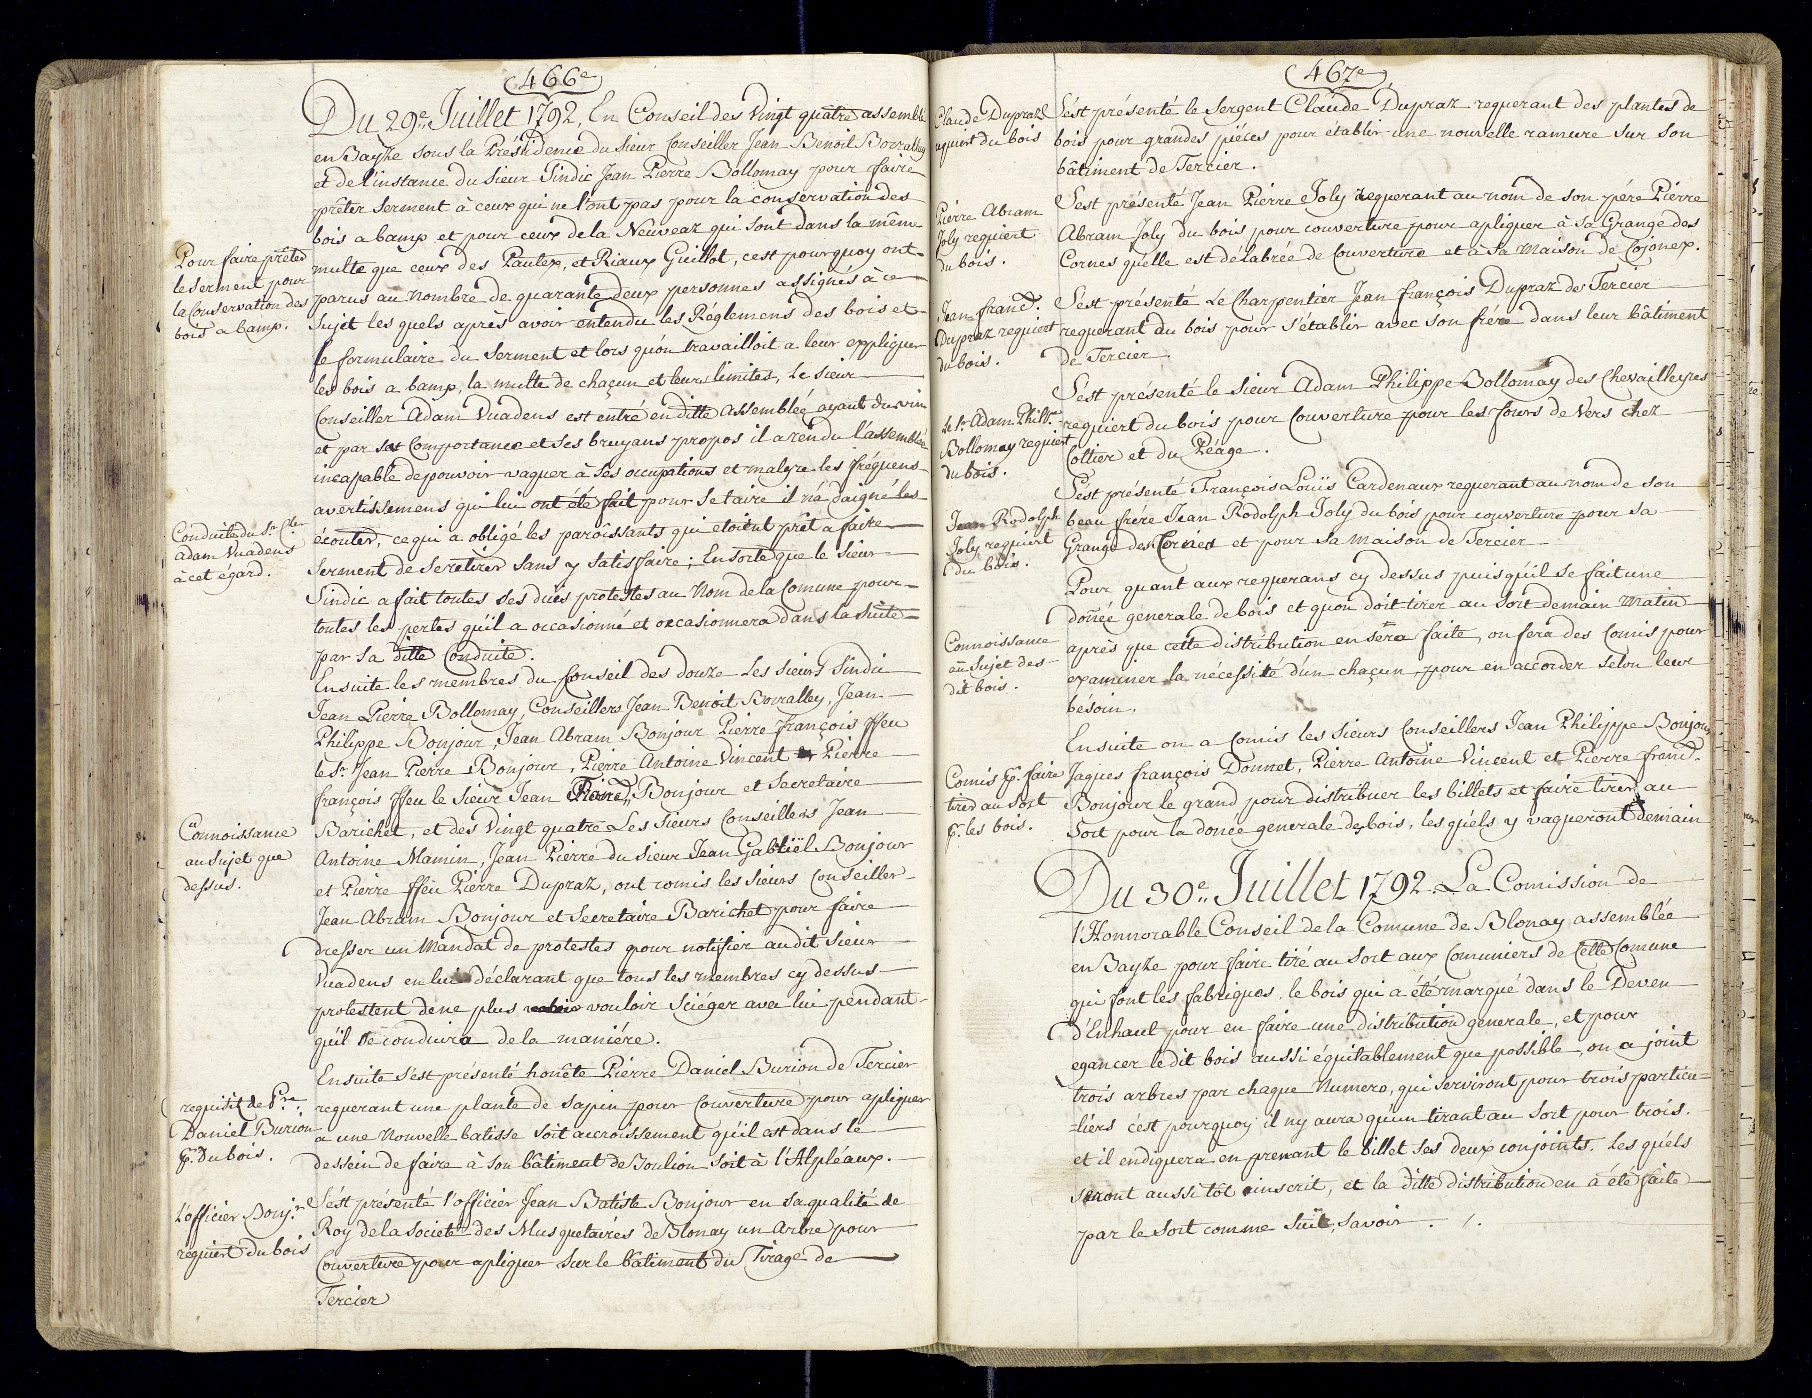 466e
Du 29e. Juillet 1792, En Conseil des Vingt quatre assemblé
en Bayse sous la Présidence du sieur Conseiller Jean Benoit Borralley
et de l'instance du Sieur Sindic Jean Pierre Bollomay pour faire
prêter serment à ceux qui ne l'ont pas pour la conservation des
bois a bamp et pour ceux de la Neuveaz qui sont dans la même
Pour faire prêter
le serment pour
la Conservation des
bois a bamp.
multe que ceux des Pautex, et Riaux Guillot, cest pourquoy ont
parus au nombre de quarante deux personnes assignés à ce
Sujet les quels après avoir entendu les Réglemens des bois et
le formulaire du Serment et lors qu'on travailloit a leur expliquer
les bois a bamp, la multe de chaçun et leurs limites, le sieur
Conseiller Adam Vuadens est entré en ditte assemblée ayant du vin
et par sa Comportance et ses bruyans propos il a rendu l'assemblée
incapable de pouvoir vaquer à ses occupations et malgre les fréquens
avertissemens qui lui ont été fait pour se taire il n'a daigné les
Conduite du Sr. Cler
adam Vuadens
à cet égard.
écouter, ce qui a obligé les paroissants qui etoient prêt a faire
Serment de se retirer sans y satisfaire; Ensorte que le sieur
Sindic a fait toutes ses dues protestes au Nom de la Comune pour
toutes les pertes qu'il a occasionné et occasionnera dans la suite
par sa ditte Conduite.
Ensuite les membres du Conseil des douze Les sieurs Sindic
Jean Pierre Bollomay, Conseillers Jean Benoit Borralley, Jean
Philippe Bonjour, Jean Abram Bonjour Pierre françois ffeu
le Sr. Jean Pierre Bonjour, Pierre Antoine Vincent Pierre
françois ffeu le Sieur Jean Bonjour et Secretaire
Connoissance
au Sujet que
dessus.
Barichet, et des Vingt quatre Les Sieurs Conseillers Jean
Antoine Mamin, Jean Pierre du sieur Jean Gabriël Bonjour
et Pierre ffeu Pierre Dupraz, ont comis les sieurs Conseiller
Jean Abram Bonjour et Secretaire Barichet pour faire
dresser un Mandat de protestes pour notifier audit sieur
Vuadens en lui déclarant que tous les membres cy dessus
protestent de ne plus vouloir Scieger avec lui pendant
qu'il se conduira de la maniére.
Ensuite s'est présenté honête Pierre Daniel Burion de Tercier
requisit de Prre.
Daniel Burion
pr. du bois.
requerant une plante de sapin pour Couverture pour apliquer
a une Nouvelle batisse soit accroissement qu'il est dans le
dessein de faire à son bâtiment de Joulion soit à l'Alpléaux.
L'officier Bonjr.
requiert du bois
S'est présenté l'officier Jean Batiste Bonjour en sa qualité de
Roy de la Societé des Musquetaires de Blonay un Arbre pour
Couverture pour apliquer sur le bâtiment du Tirage de
Tercier
467e
Claude Dupraz
requiert du bois
S'est présenté le sergent Claude Dupraz requerant des plantes de
bois pour grandes piéces pour établir une nouvelle ramure sur son
bâtiment de Tercier.
Pierre Abram
Joly requiert
du bois.
S'est présenté Jean Pierre Joly requerant au nom de son pére Pierre
Abram Joly du bois pour couverture pour apliquer à sa Grange des
Cornes qu'elle est delabrée de Couverture et à sa Maison de Cojonex.
Jean franç.
Dupraz requiert
du bois.
S'est présenté Le Charpentier Jean françois Dupraz de Tercier
requerant du bois pour s'établir avec son frére dans leur bâtiment
de Tercier
Le Sr. Adam Philipe
Bollomay requiert
du bois.
S'est présenté le sieur Adam Philippe Bollomay des Chevailleyres
requiert du bois pour Couverture pour les Jours de Vers chez
Cottier et du Péage.
Jean Rodolph
Joly requiert
du bois.
S'est présenté François Louïs Cardenaux requerant au nom de son
beau frére Jean Rodolph Joly du bois pour couverture pour sa
Grange des Cornes et pour sa maison de Tercier
Connoissance
au Sujet des
dit bois.
Pour quant aux requerans cy dessus puisqu'il se fait une
donée generale de bois et qu'on doit tirer au sort demain Matin
aprés que cette distribution en sera faite, on fera des Comis pour
examiner la nécessité d'un chaçun, pour en accorder selon leur
bésoin.
Comis pr. faire
tirer au sort
pr. les bois.
Ensuite on a Comis les sieurs Conseillers Jean Philippe Bonjour
Jaques françois Donnet, Pierre Antoine Vincent et Pierre franç.
Bonjour le grand pour distribuer les billets et faire tirer au
Sort pour la donée generale des bois, les quels y vaqueront demain
Du 30e. Juillet 1792. La Comission de
l'Honnorable Conseil de la Comune de Blonay assemblée
en Bayse pour faire tiré au Sort aux Comuniers de Cette Comune
qui font les fabriques, le bois qui a été marqué dans le Deven
d'Enhaut pour en faire une distribution generale, et pour
egancer le dit bois aussi équitablement que possible, on a joint
trois arbres par chaque Numero, qui serviront pour trois particu=
=liers c'est pourquoy il ny aura qu'un tirant au sort pour trois.
et il endiquera en prenant le billet ses deux conjoints. Les quels
seront aussi tôt inscrit, et la ditte distribution en a été faite
par le sort comme suit, savoir. /.